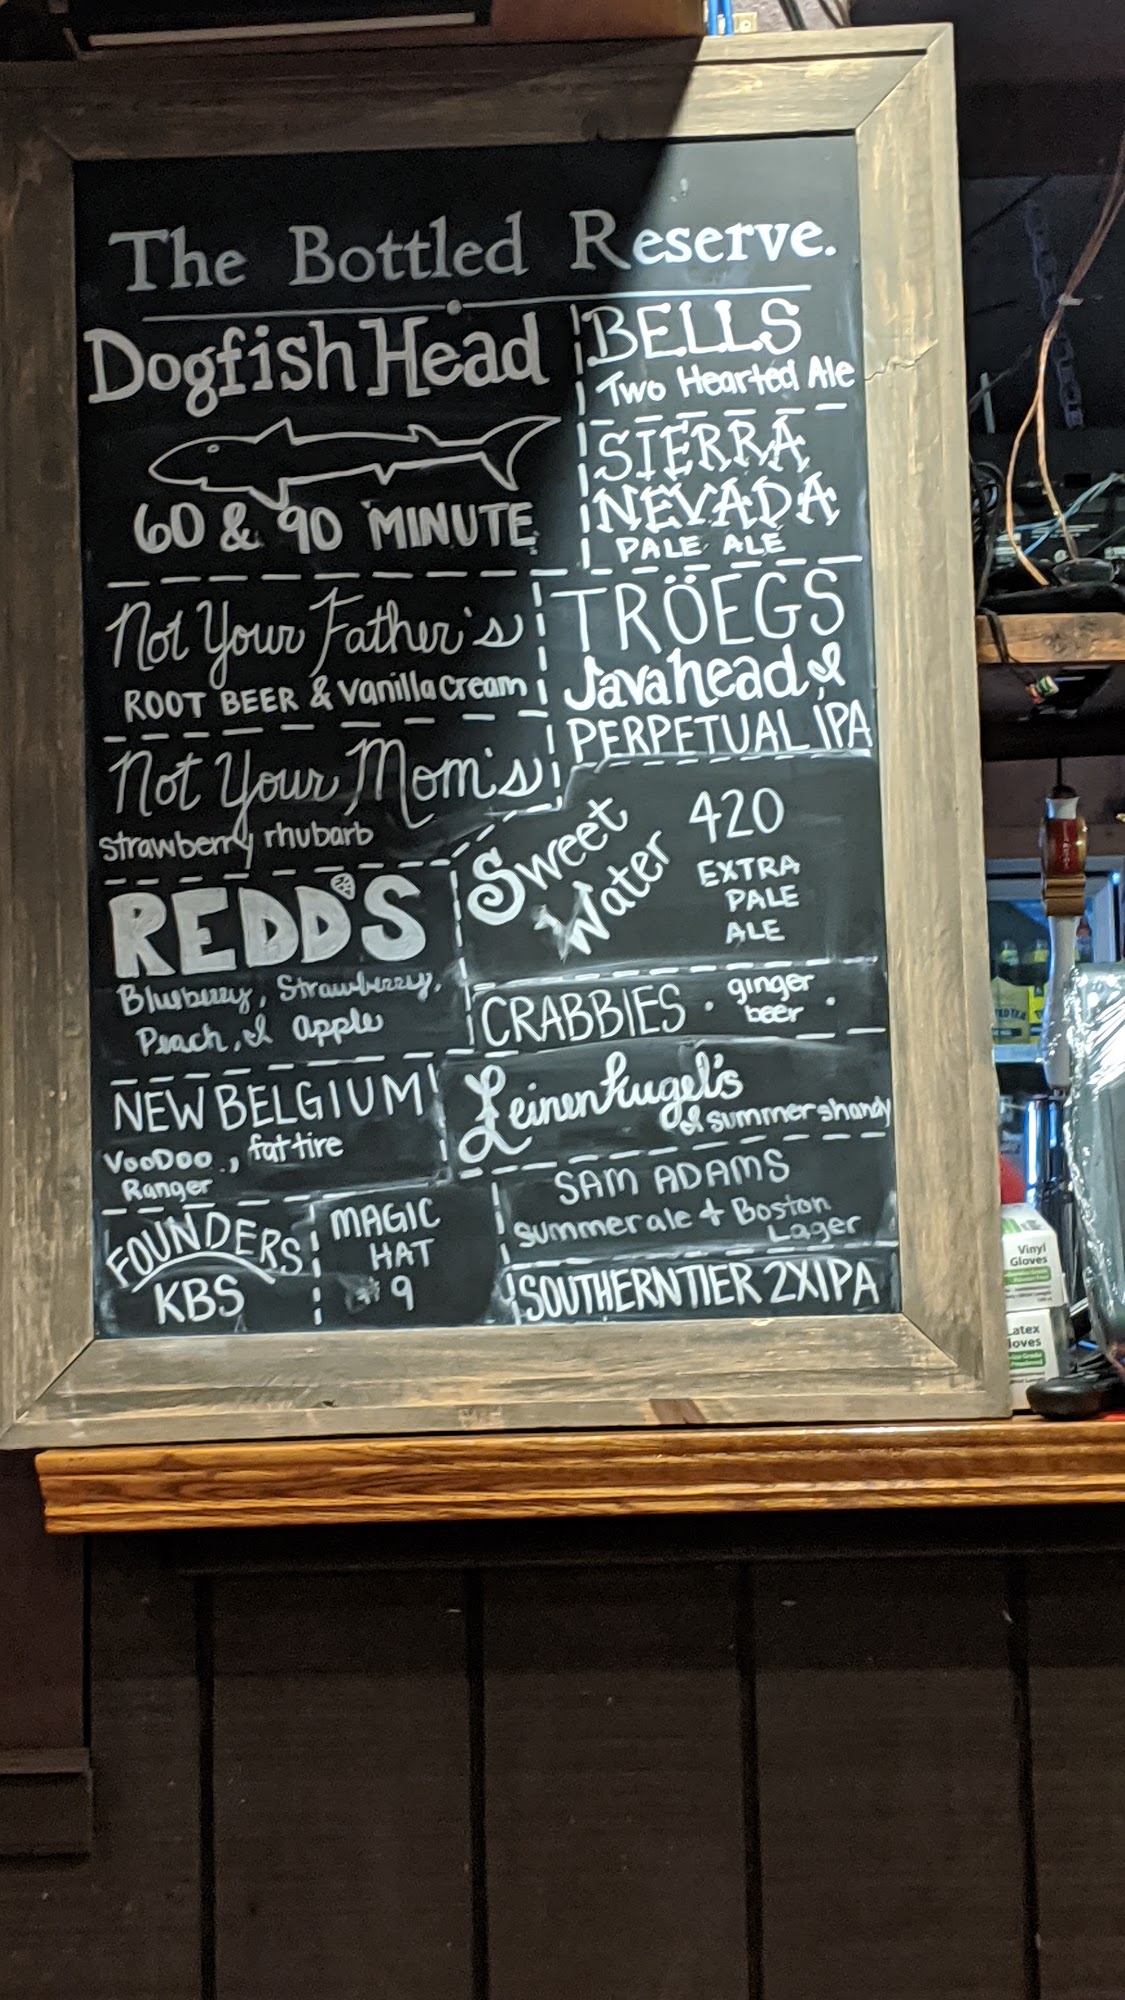 The Bottled Reserve.
Dogfish Head
60 & 90 MINUTE
BELLS
Two Hearted Ale
SIERRA
NEVADA
PALE ALE
Not Your Father's
ROOT BEER & Vanilla Cream
TRÖEGS
Javahead &
PERPETUAL IPA
Not Your Mom's
strawberry rhubarb
Sweet
Water
420
EXTRA
PALE
ALE
REDD'S
Blueberry, Strawberry,
Peach, & apple
CRABBIES · ginger
beer ·
NEW BELGIUM
VooDoo
Ranger
, fat tire
Leinenkugel's
& summer shandy
SAM ADAMS
summer ale + Boston
Lager
FOUNDERS
KBS
MAGIC
HAT
#9
SOUTHERN TIER 2XIPA
Vinyl
Gloves
Latex